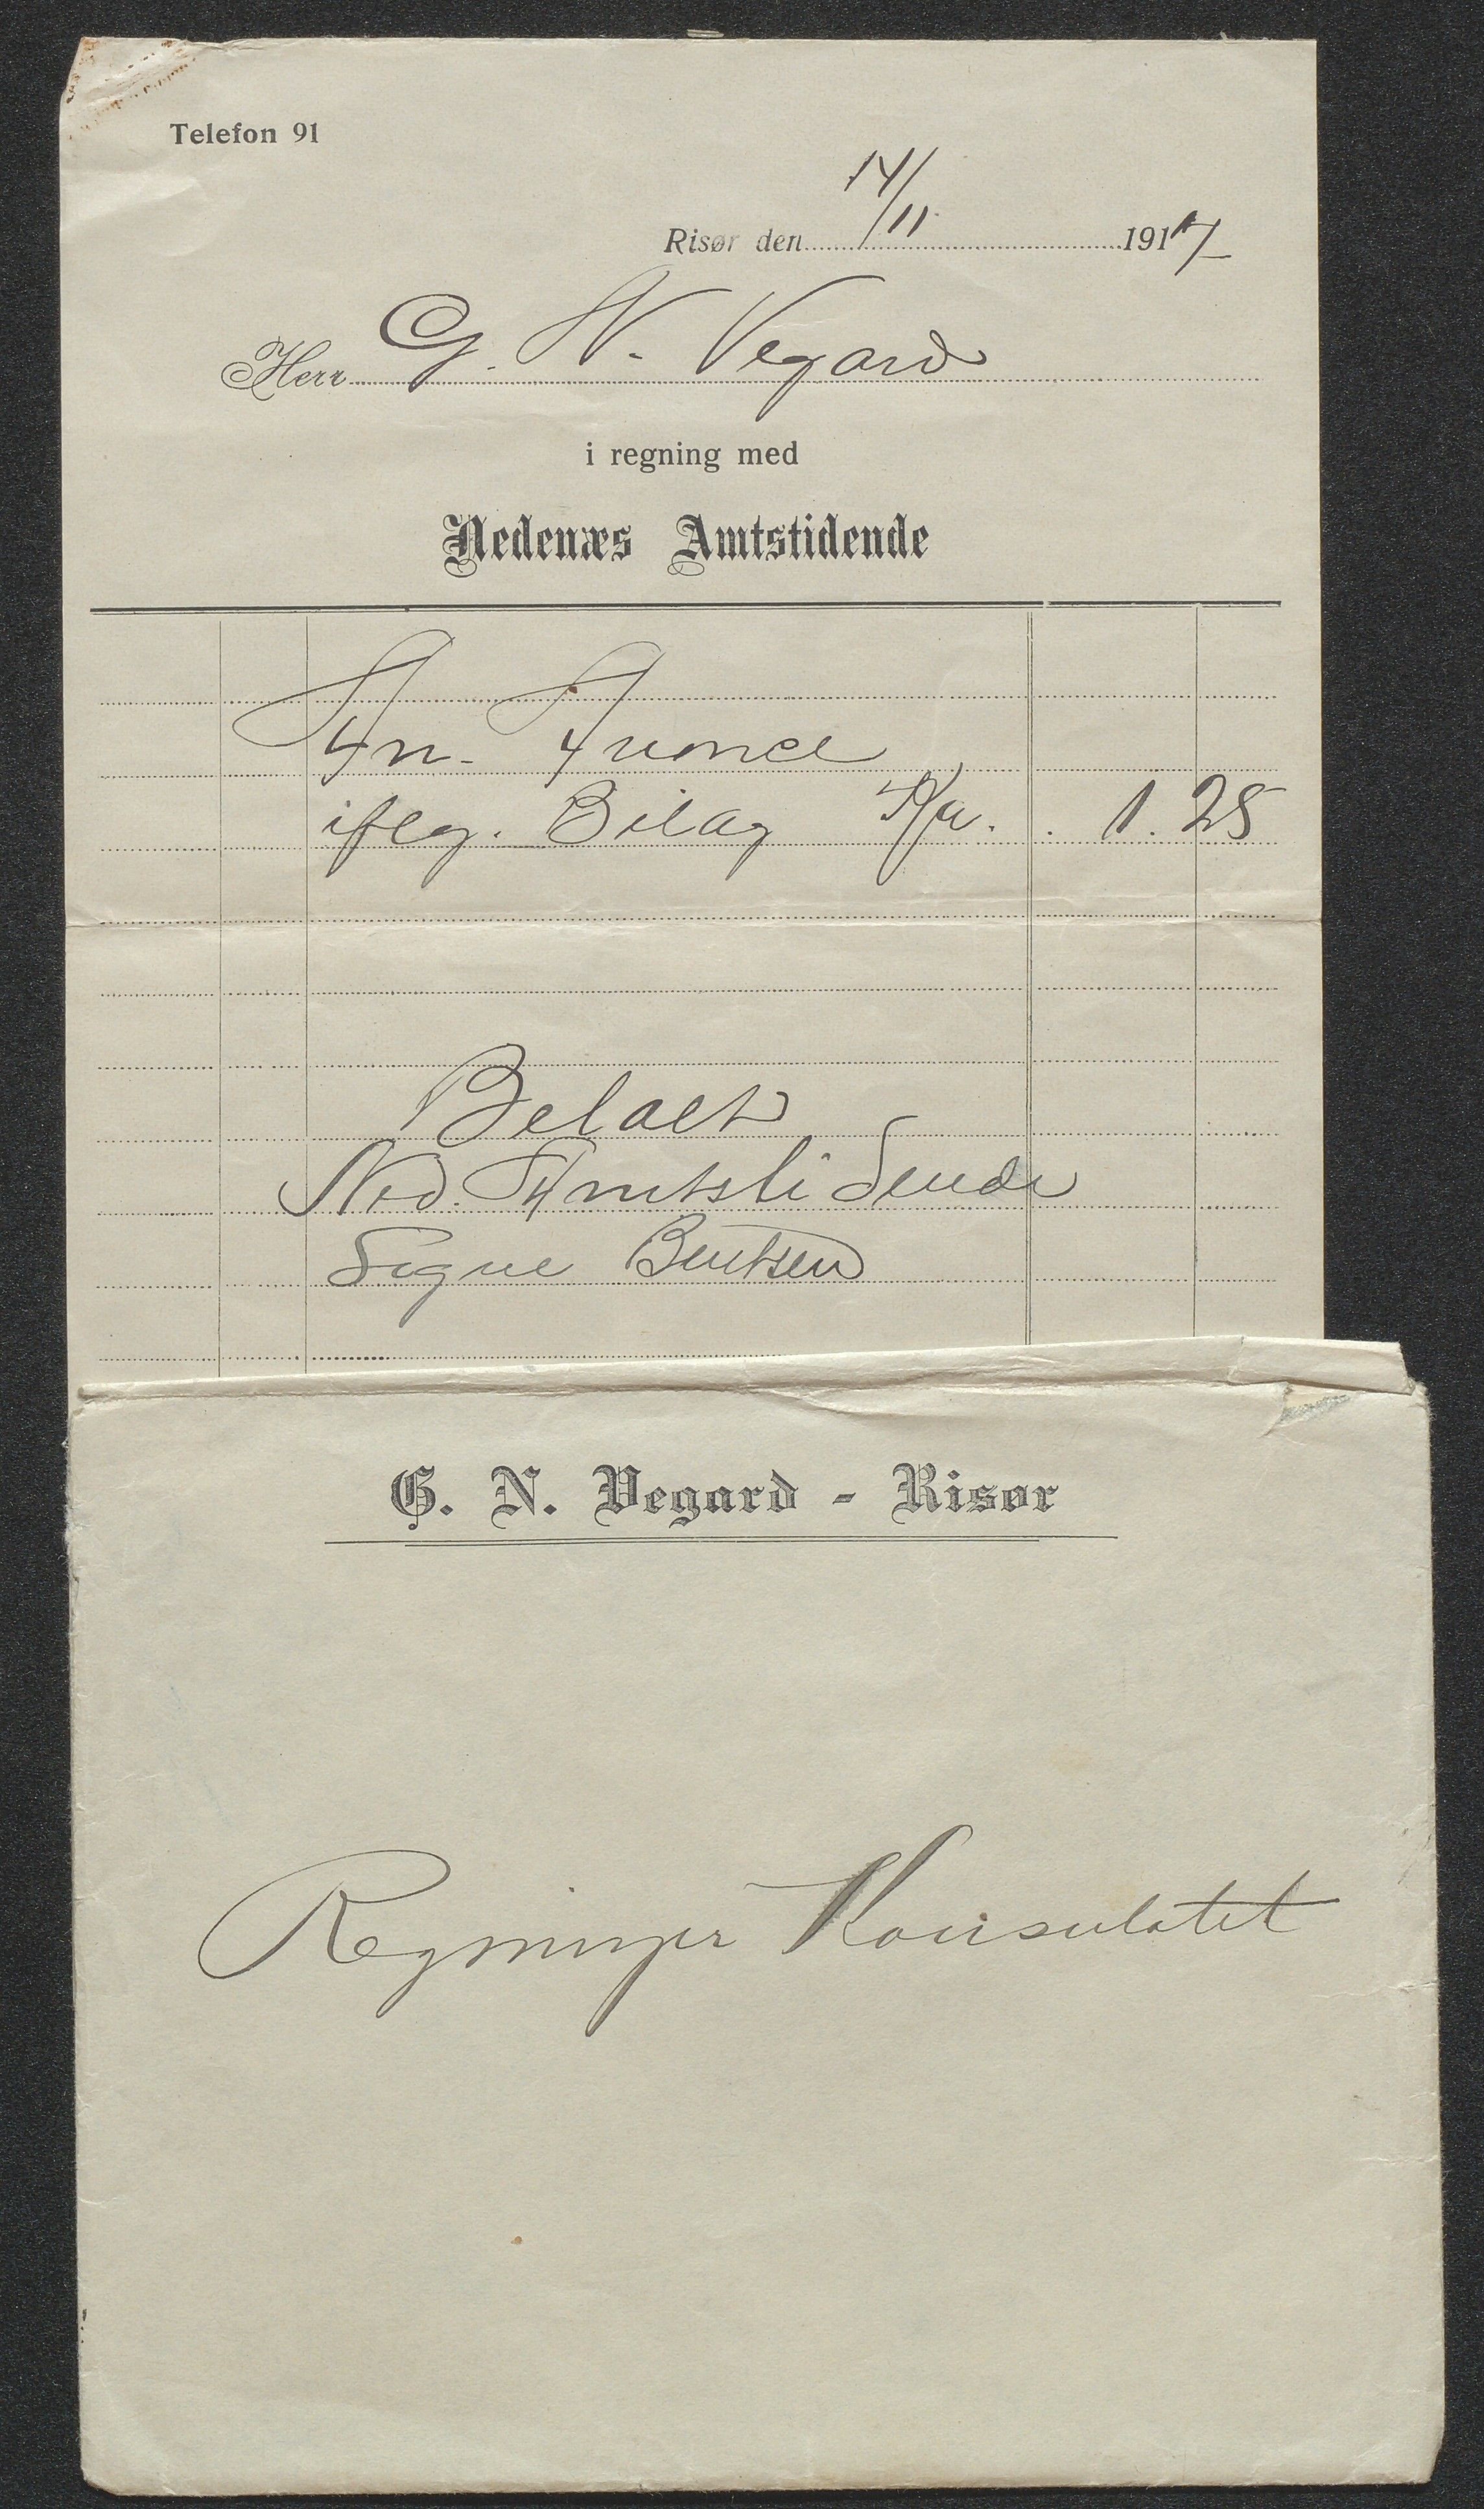 Telefon 91
Risør den 14/11 1917
Herr G. N. Vegard
i regning med
Nedenæs Amtstidende
An. Anonce
iflg. Bilag Kr. 1. 25
Betalt
Ned. Amtstidende
Signe Bentsen
G. N. Vegard - Risør
Regninger Konsulatet